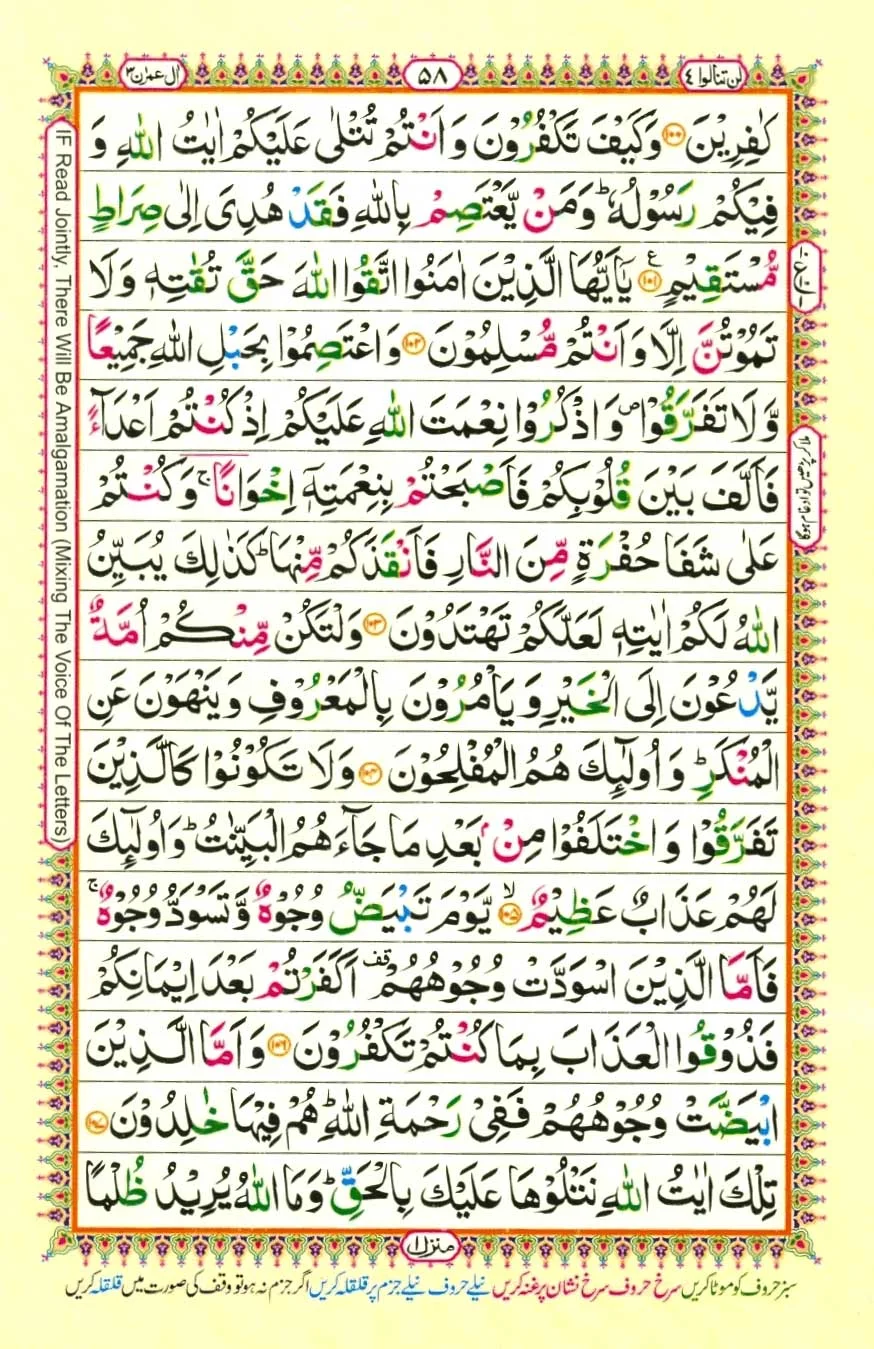 لن تنالوا ٤
٥٨
اٰل عمرٰن ٣
كٰفِرِيْنَ ۝١٠٠ وَكَيْفَ تَكْفُرُوْنَ وَاَنْتُمْ تُتْلٰى عَلَيْكُمْ اٰيٰتُ اللّٰهِ وَ
فِيْكُمْ رَسُوْلُهٗ ؕ وَمَنْ يَّعْتَصِمْ بِاللّٰهِ فَقَدْ هُدِىَ اِلٰى صِرَاطٍ
مُّسْتَقِيْمٍ ۝١٠١ ع يٰۤاَيُّهَا الَّذِيْنَ اٰمَنُوا اتَّقُوا اللّٰهَ حَقَّ تُقٰتِهٖ وَلَا
تَمُوْتُنَّ اِلَّا وَاَنْتُمْ مُّسْلِمُوْنَ ۝١٠٢ وَاعْتَصِمُوْا بِحَبْلِ اللّٰهِ جَمِيْعًا
وَّلَا تَفَرَّقُوْا ص وَاذْكُرُوْا نِعْمَتَ اللّٰهِ عَلَيْكُمْ اِذْ كُنْتُمْ اَعْدَآءً
فَاَلَّفَ بَيْنَ قُلُوْبِكُمْ فَاَصْبَحْتُمْ بِنِعْمَتِهٖۤ اِخْوَانًا ۚ وَكُنْتُمْ
عَلٰى شَفَا حُفْرَةٍ مِّنَ النَّارِ فَاَنْقَذَكُمْ مِّنْهَا ؕ كَذٰلِكَ يُبَيِّنُ
اللّٰهُ لَكُمْ اٰيٰتِهٖ لَعَلَّكُمْ تَهْتَدُوْنَ ۝١٠٣ وَلْتَكُنْ مِّنْكُمْ اُمَّةٌ
يَّدْعُوْنَ اِلَى الْخَيْرِ وَيَاْمُرُوْنَ بِالْمَعْرُوْفِ وَيَنْهَوْنَ عَنِ
الْمُنْكَرِ ؕ وَاُولٰٓئِكَ هُمُ الْمُفْلِحُوْنَ ۝١٠٤ وَلَا تَكُوْنُوْا كَالَّذِيْنَ
تَفَرَّقُوْا وَاخْتَلَفُوْا مِنْۢ بَعْدِ مَا جَآءَهُمُ الْبَيِّنٰتُ ؕ وَاُولٰٓئِكَ
لَهُمْ عَذَابٌ عَظِيْمٌ ۝١٠٥ ۙ يَّوْمَ تَبْيَضُّ وُجُوْهٌ وَّتَسْوَدُّ وُجُوْهٌ ۚ
فَاَمَّا الَّذِيْنَ اسْوَدَّتْ وُجُوْهُهُمْ قف اَكَفَرْتُمْ بَعْدَ اِيْمَانِكُمْ
فَذُوْقُوا الْعَذَابَ بِمَا كُنْتُمْ تَكْفُرُوْنَ ۝١٠٦ وَاَمَّا الَّذِيْنَ
ابْيَضَّتْ وُجُوْهُهُمْ فَفِىْ رَحْمَةِ اللّٰهِ ؕ هُمْ فِيْهَا خٰلِدُوْنَ ۝١٠٧
تِلْكَ اٰيٰتُ اللّٰهِ نَتْلُوْهَا عَلَيْكَ بِالْحَقِّ ؕ وَمَا اللّٰهُ يُرِيْدُ ظُلْمًا
منزل ١
سبز حروف کو موٹا کریں سرخ حروف سرخ نشان پر غنہ کریں نیلے حروف نیلے جزم پر قلقلہ کریں اگر جزم نہ ہو تو وقف کی صورت میں قلقلہ کریں
IF Read Jointly, There Will Be Amalgamation (Mixing The Voice Of The Letters)
ملا کر پڑھیں تو ادغام ہوگا